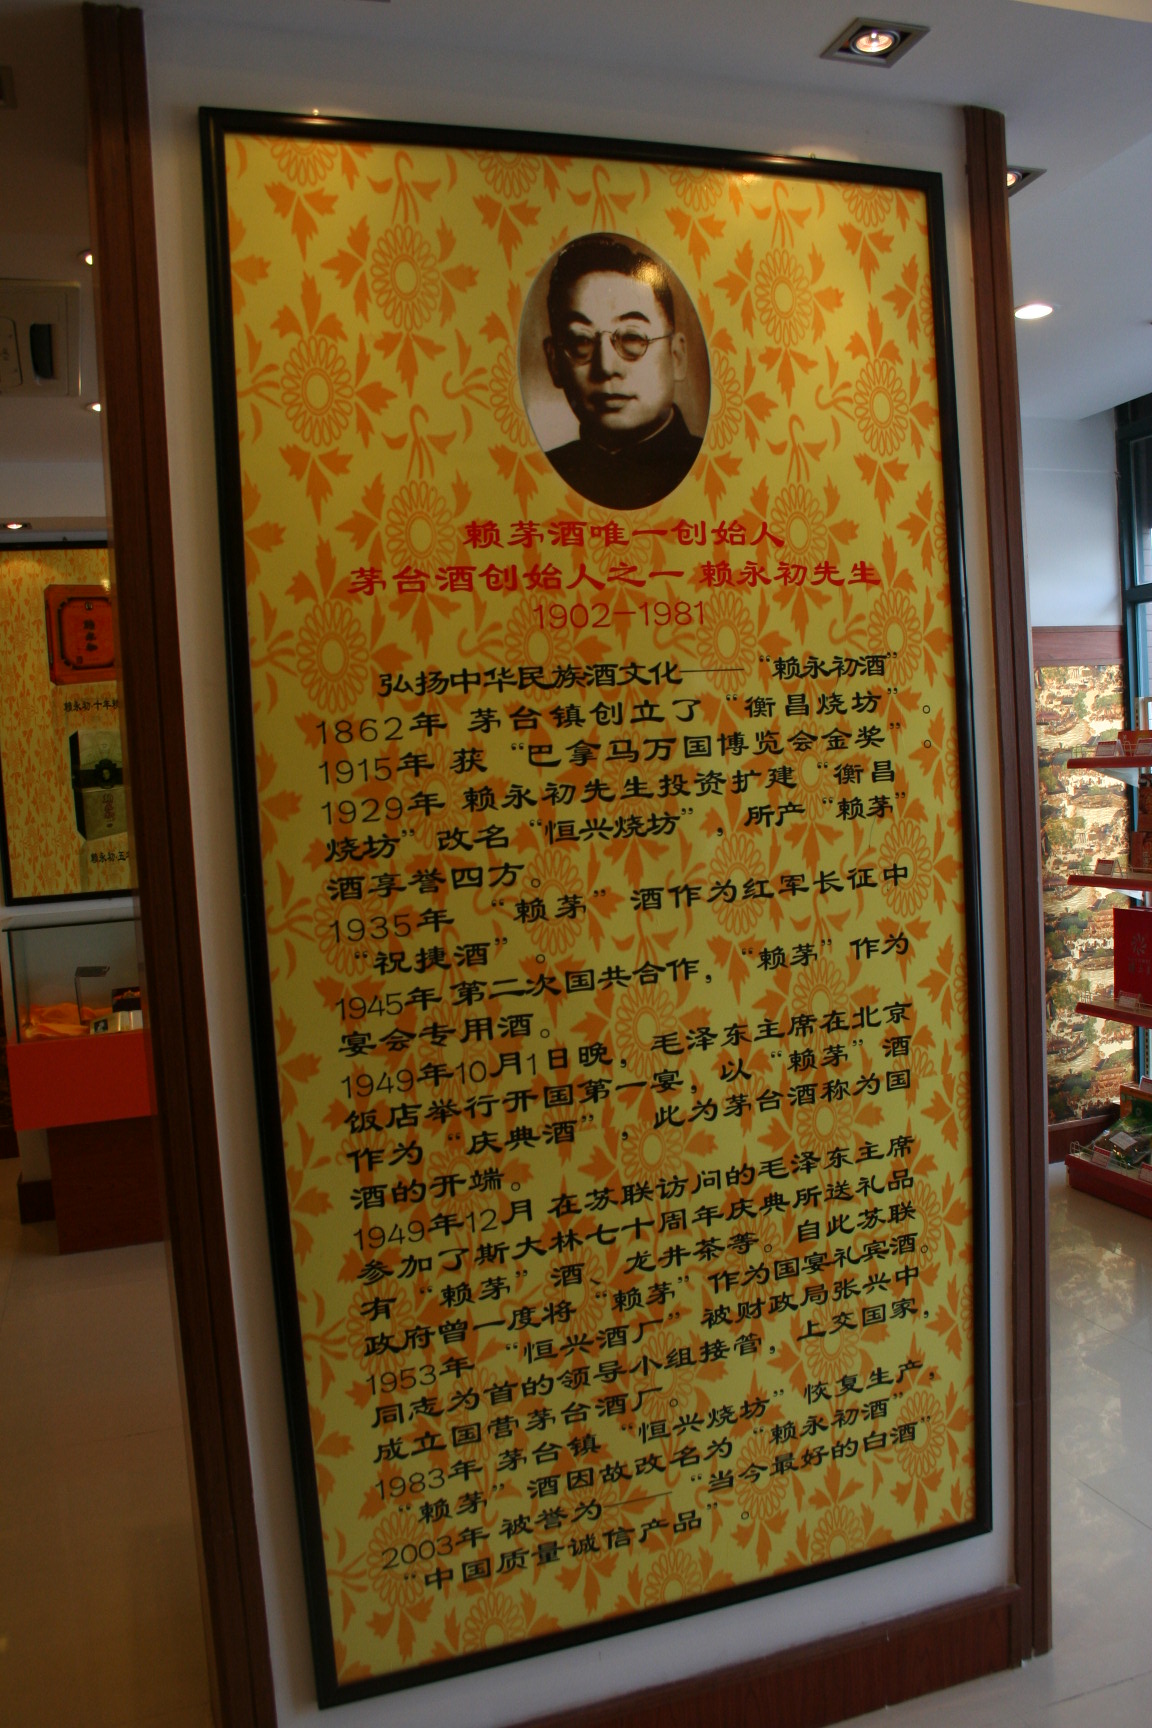 赖茅酒唯一创始人
茅台酒创始人之一 赖永初先生
1902-1981
弘扬中华民族酒文化——“赖永初酒”
1862年 茅台镇创立了“衡昌烧坊”。
1915年 获“巴拿马万国博览会金奖”。
1929年 赖永初先生投资扩建“衡昌
烧坊”改名“恒兴烧坊”，所产“赖茅”
酒享誉四方。
1935年 “赖茅”酒作为红军长征中
“祝捷酒”。
1945年 第二次国共合作，“赖茅”作为
宴会专用酒。
1949年10月1日晚，毛泽东主席在北京
饭店举行开国第一宴，以“赖茅”酒
作为“庆典酒”，此为茅台酒称为国
酒的开端。
1949年12月 在苏联访问的毛泽东主席
参加了斯大林七十周年庆典所送礼品
有“赖茅”酒、龙井茶等。自此苏联
政府曾一度将“赖茅”作为国宴礼宾酒。
1953年 “恒兴酒厂”被财政局张兴中
同志为首的领导小组接管，上交国家，
成立国营茅台酒厂。
1983年 茅台镇“恒兴烧坊”恢复生产，
“赖茅”酒因故改名为“赖永初酒”
2003年 被誉为——“当今最好的白酒”
“中国质量诚信产品”。
赖永初
赖永初·十年